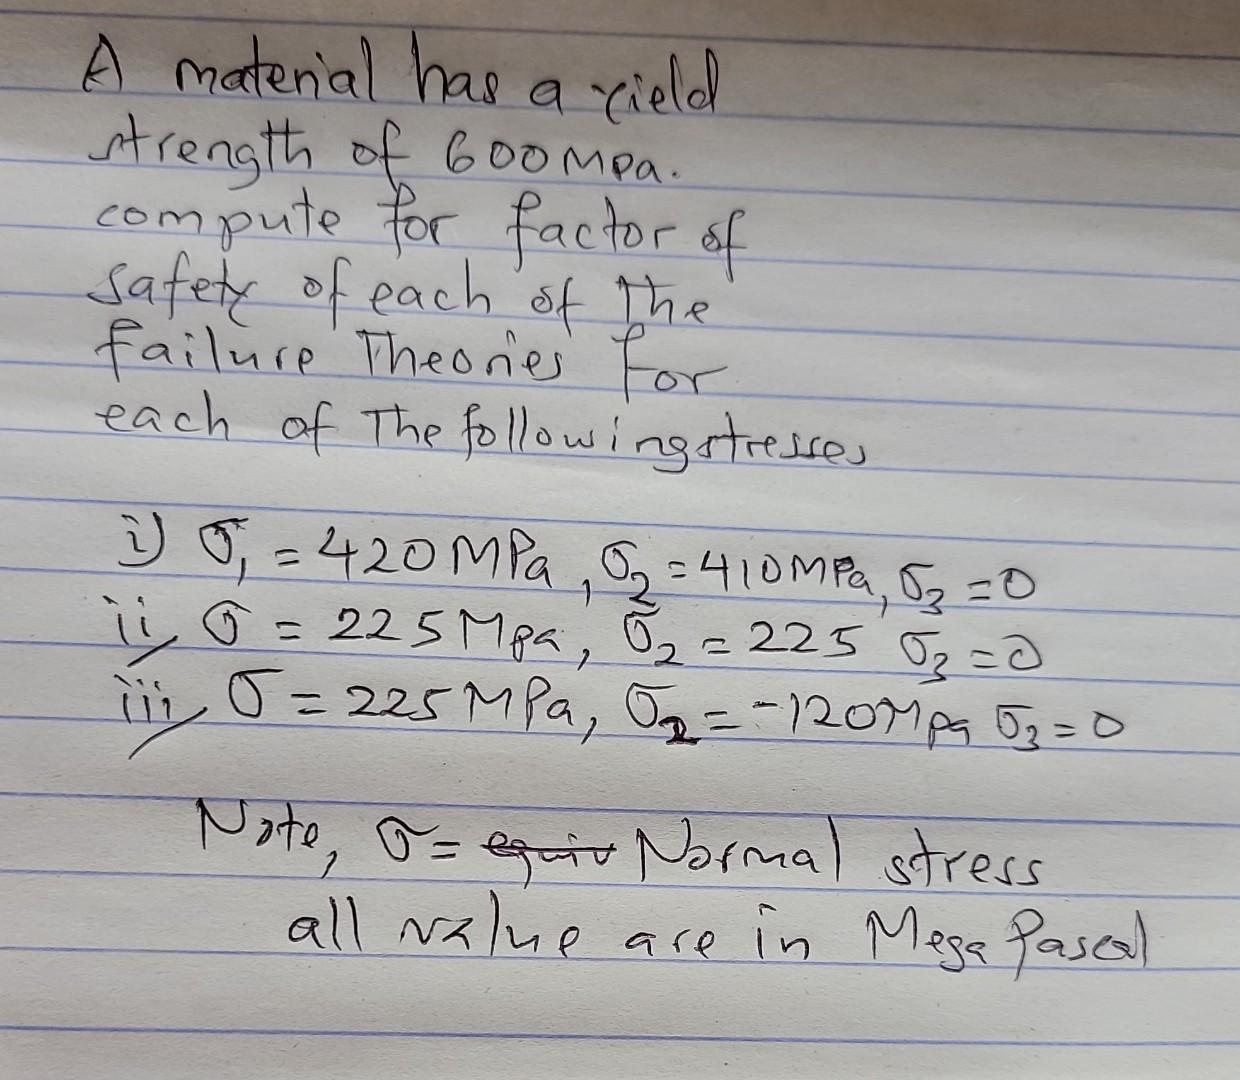 A material has a yield
strength of 600 MPa.
compute for factor of
safety of each of the
failure Theories for
each of The following stresses
i) σ₁ = 420 MPa, σ₂ = 410 MPa, σ₃ = 0
ii, σ = 225 Mpa, σ₂ = 225 σ₃ = 0
iii, σ = 225 MPa, σ₂ = -120 Mpa σ₃ = 0
Note, σ = Normal stress
all value are in Mega Pascal